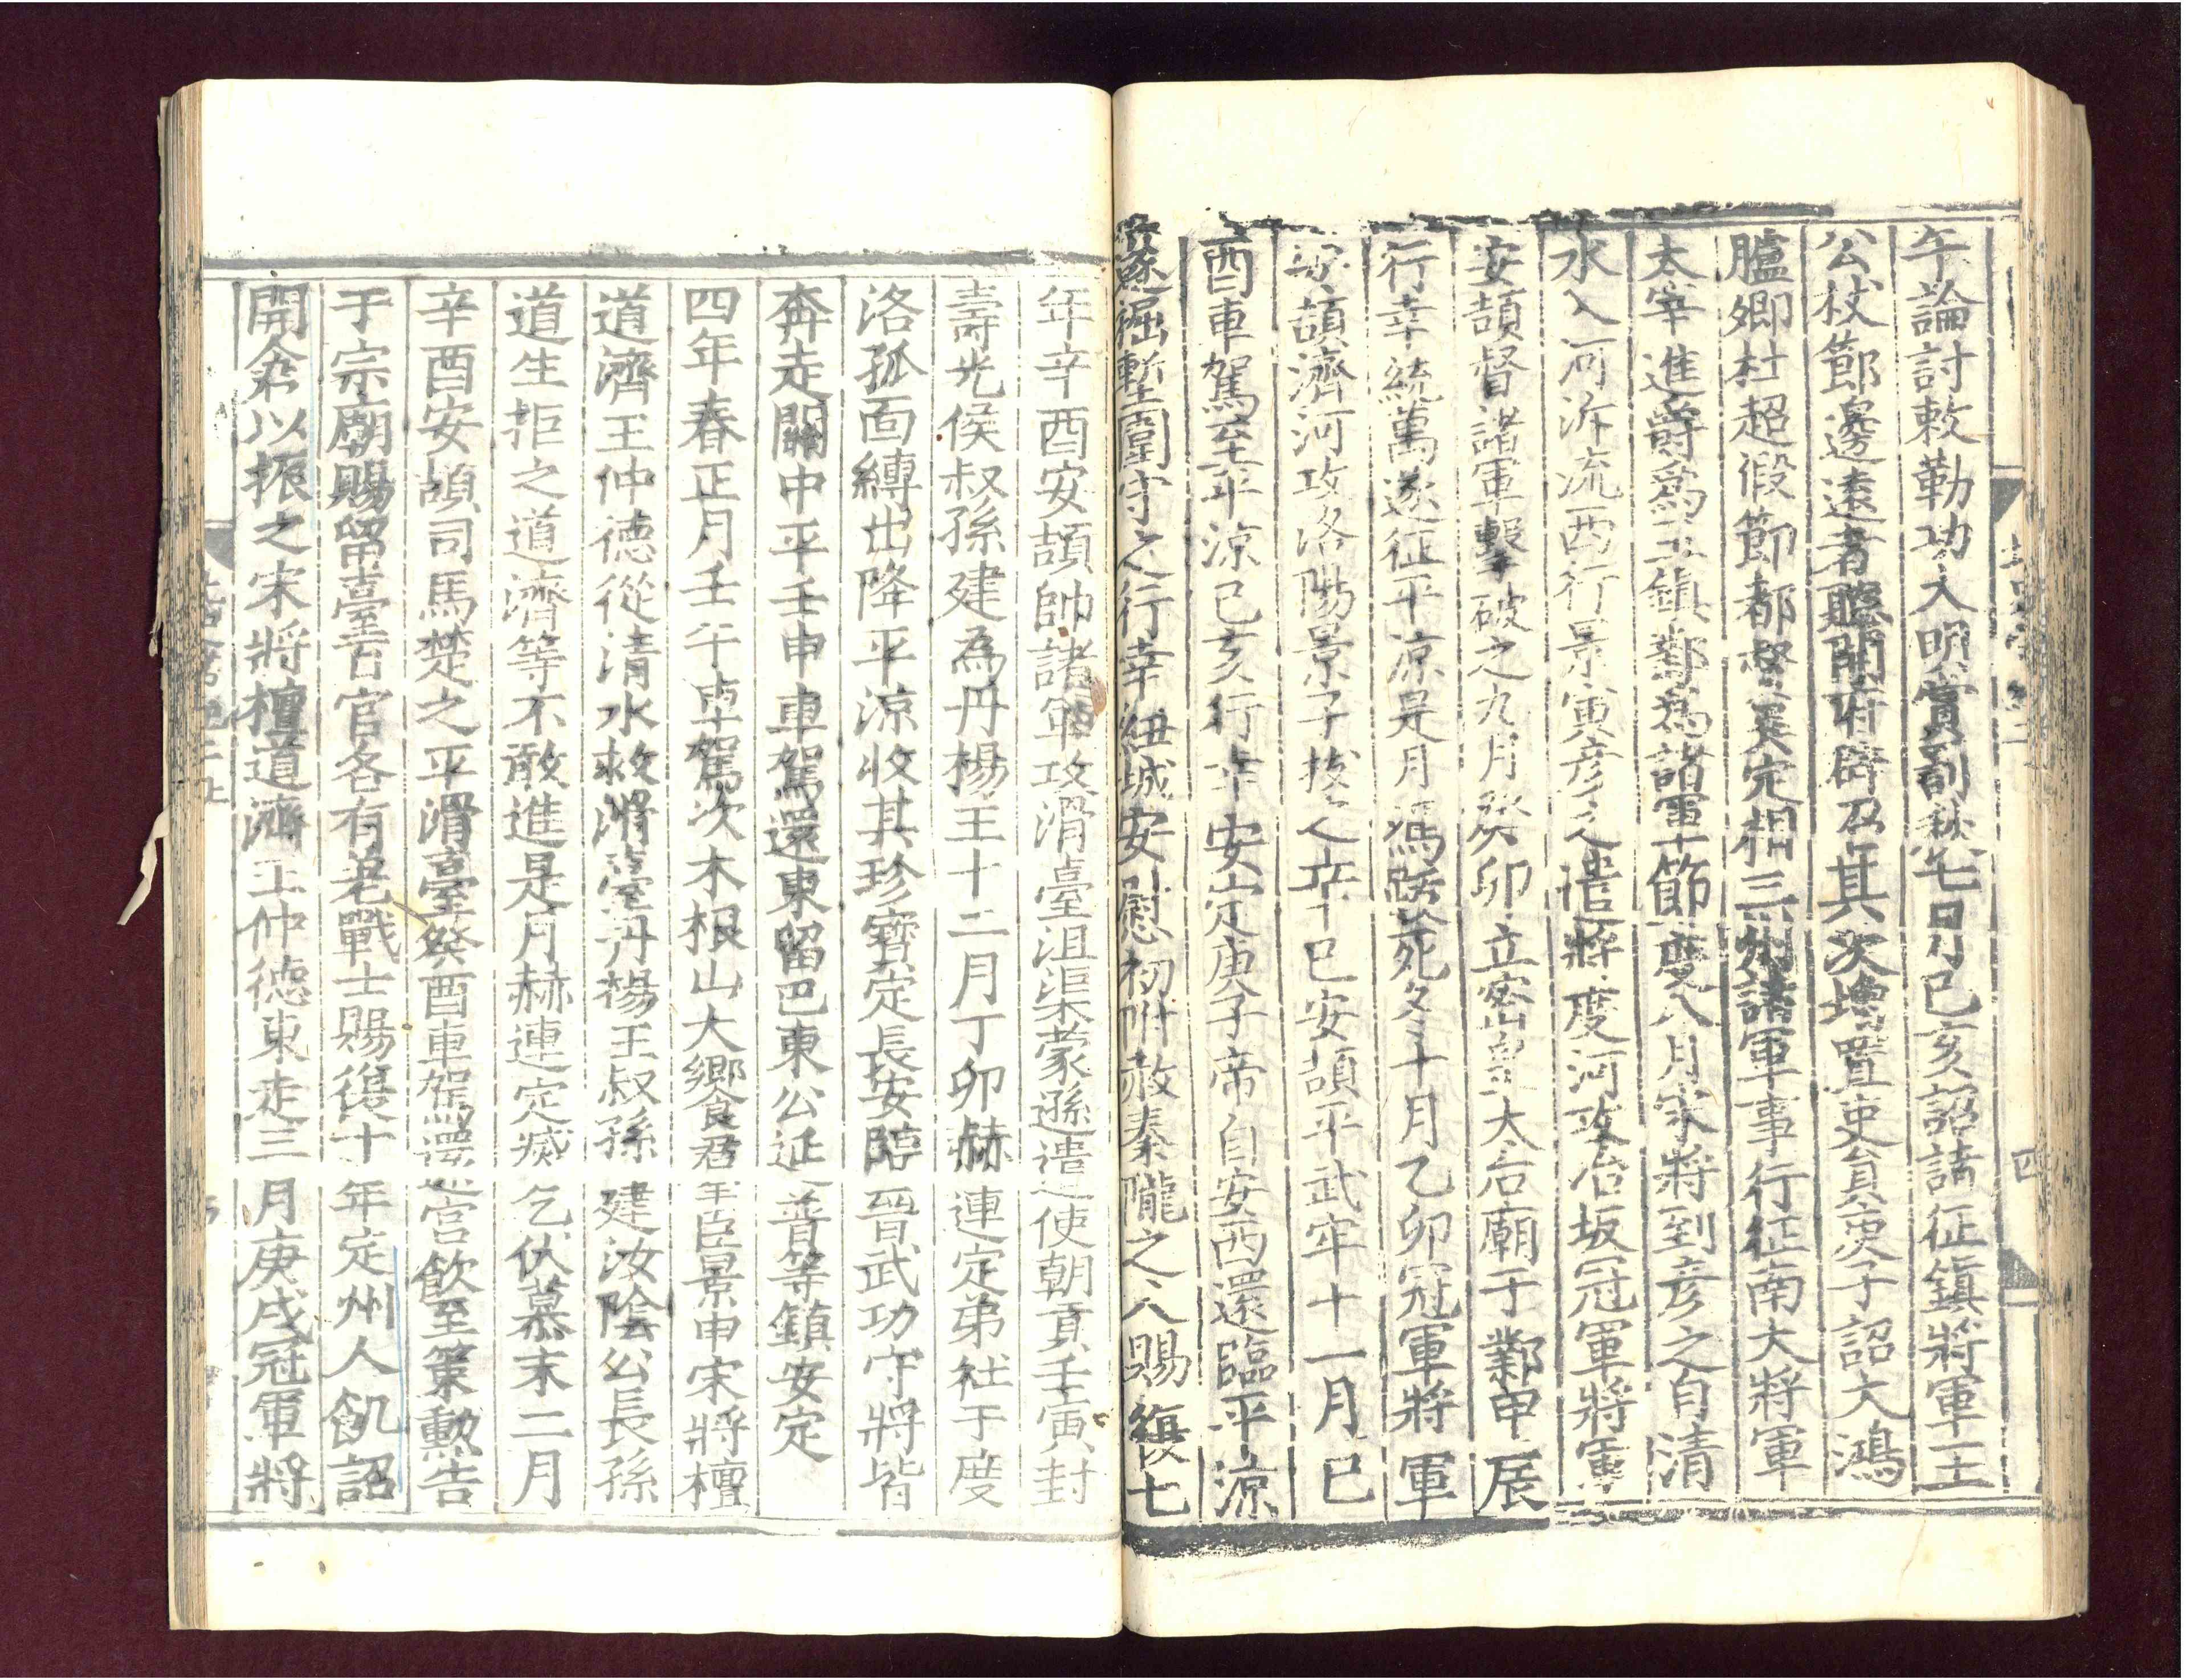 午論討敕勒功大明賞罰秋七月己亥詔諸征鎮將軍王
公杖節邊遠者聽開府辟召其次增置吏員庚子詔大鴻
臚卿杜超假節都督冀定相三州諸軍事行征南大將軍
太宰進爵爲王鎮鄴爲諸軍節度八月宋將到彥之自清
水入河泝流西行景寅彥之遣將度河攻冶坂冠軍將軍
安頡督諸軍擊破之九月癸卯立密皇太后廟于鄴甲辰
行幸統萬遂征平涼是月馮跋死冬十月乙卯冠軍將軍
安頡濟河攻洛陽景子拔之辛巳安頡平武牢十一月己
酉車駕至平涼己亥行幸安定庚子帝自安西還臨平涼
遂掘塹圍守之行幸紐城安慰初附赦秦隴之人賜復七
年辛酉安頡帥諸軍攻滑臺沮渠蒙遜遣使朝貢壬寅封
壽光侯叔孫建為丹楊王十二月丁卯赫連定弟社于度
洛孤面縛出降平涼收其珍寶定長安臨晉武功守將皆
奔走關中平壬申車駕還東留巴東公延普等鎮安定
四年春正月壬午車駕次木根山大饗羣臣景申宋將檀
道濟王仲德從清水救滑臺丹楊王叔孫建汝陰公長孫
道生拒之道濟等不敢進是月赫連定滅乞伏慕末二月
辛酉安頡司馬楚之平滑臺癸酉車駕還宮飲至策勳告
于宗廟賜留臺百官各有差戰士賜復十年定州人飢詔
開倉以振之宋將檀道濟王仲德東走三月庚戌冠軍將
四